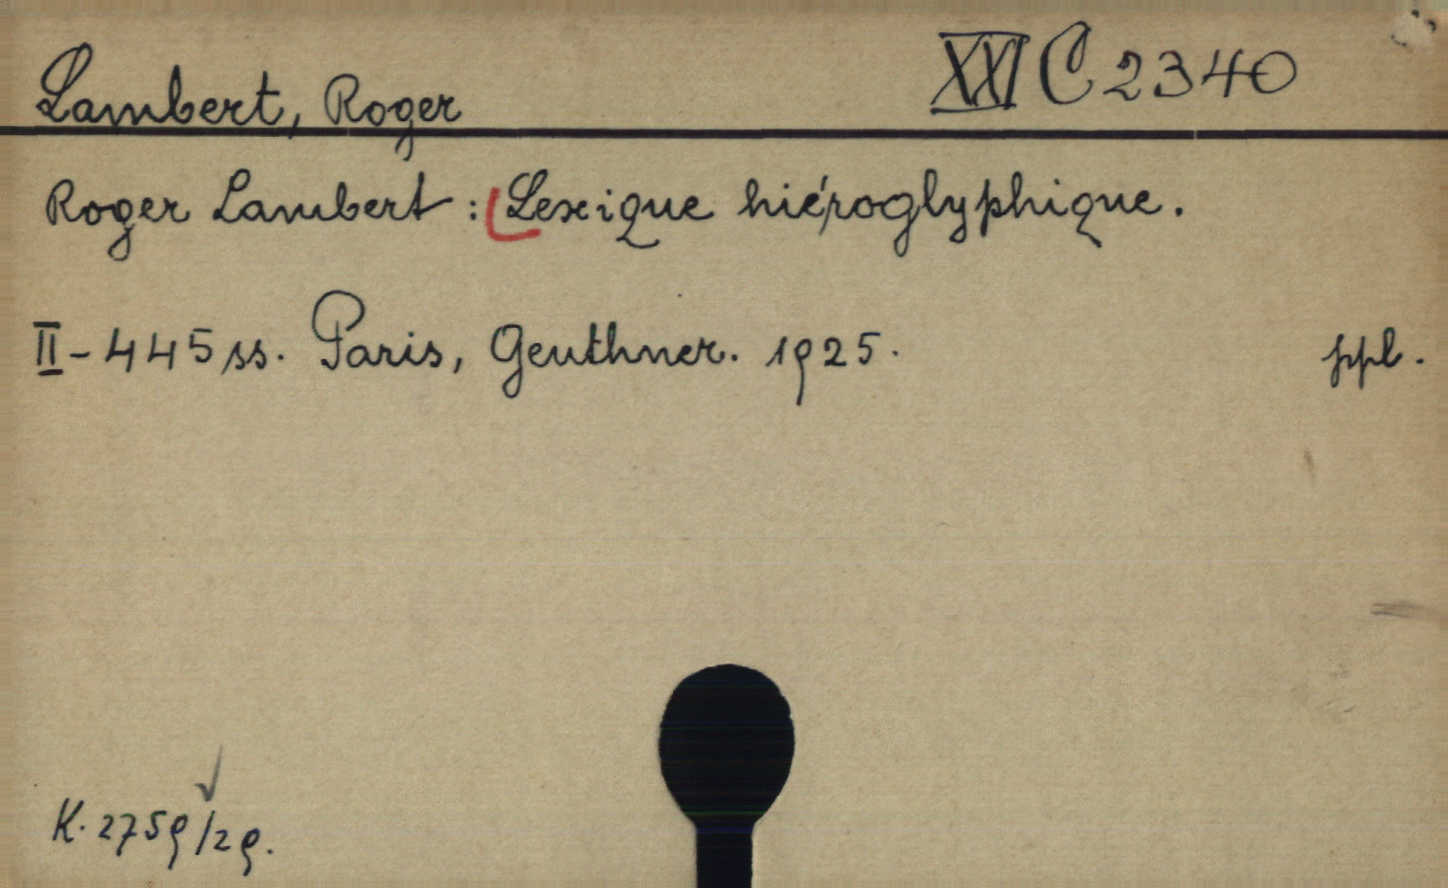 Lambert, Roger XXI C 2340
Roger Lambert : Lexique hiéroglyphique.
II - 445 ss. Paris, Geuthner. 1925. ppl.
K. 2759/29.